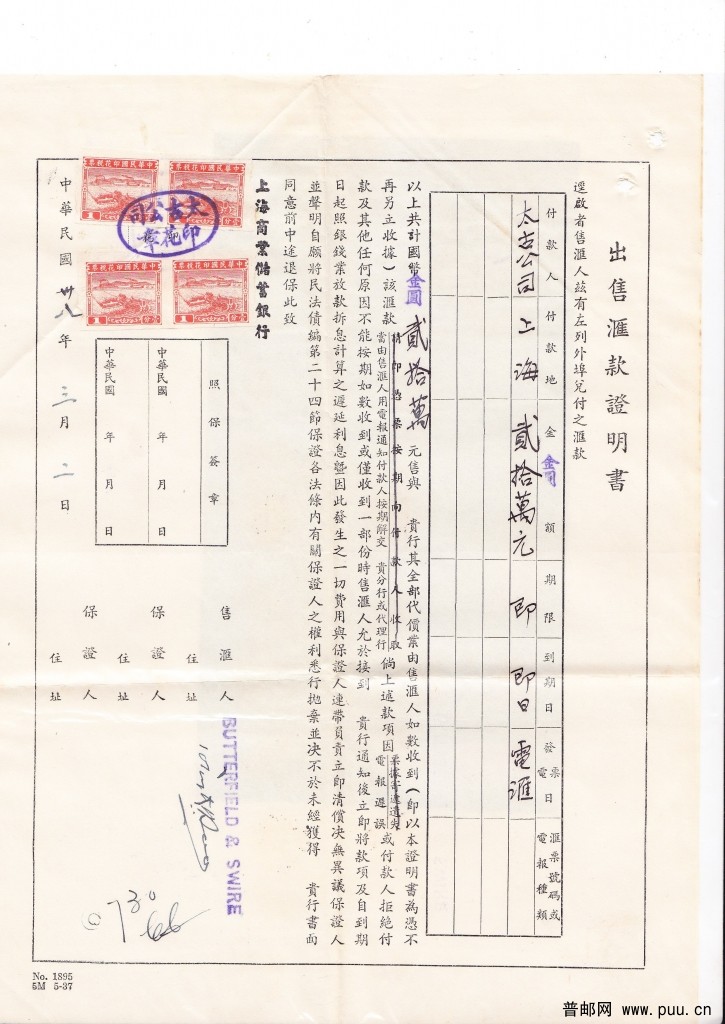 出售滙款證明書
逕啟者售滙人茲有左列外埠兌付之滙款
付款人 付款地 金額 期限 到期日 發票電日 滙票號碼或電報種類
金圓
太古公司 上海 貳拾萬元 即 即日 電滙
以上共計國幣金圓貳拾萬元售與 貴行其全部代價業由售滙人如數收到(即以本證明書為憑不
再另立收據)該滙款 請即憑票按期向付款人收取 當由售滙人用電報通知付款人按期解交 貴分行或代理行 倘上述款項因 票據寄遞遺失 電報遲誤 或付款人拒絕付
款及其他任何原因不能按期如數收到或僅收到一部份時售滙人允於接到 貴行通知後立即將款項及自到期
日起照銀錢業放款拆息計算之遲延利息暨因此發生之一切費用與保證人連帶負責立即清償決無異議保證人
並聲明自願將民法債編第二十四節保證各法條內有關保證人之權利悉行拋棄並決不於未經獲得 貴行書面
同意前中途退保此致
上海商業儲蓄銀行
售滙人
住址
BUTTERFIELD & SWIRE
保證人
住址
保證人
住址
照保簽章
中華民國 年 月 日
中華民國 年 月 日
中華民國卅八年三月二日
中華民國印花稅票
1
中華民國印花稅票
中華民國印花稅票
1
中華民國印花稅票
太古公司
印花章
730
66
No. 1895
5M 5-37
普邮网 www.puu.cn